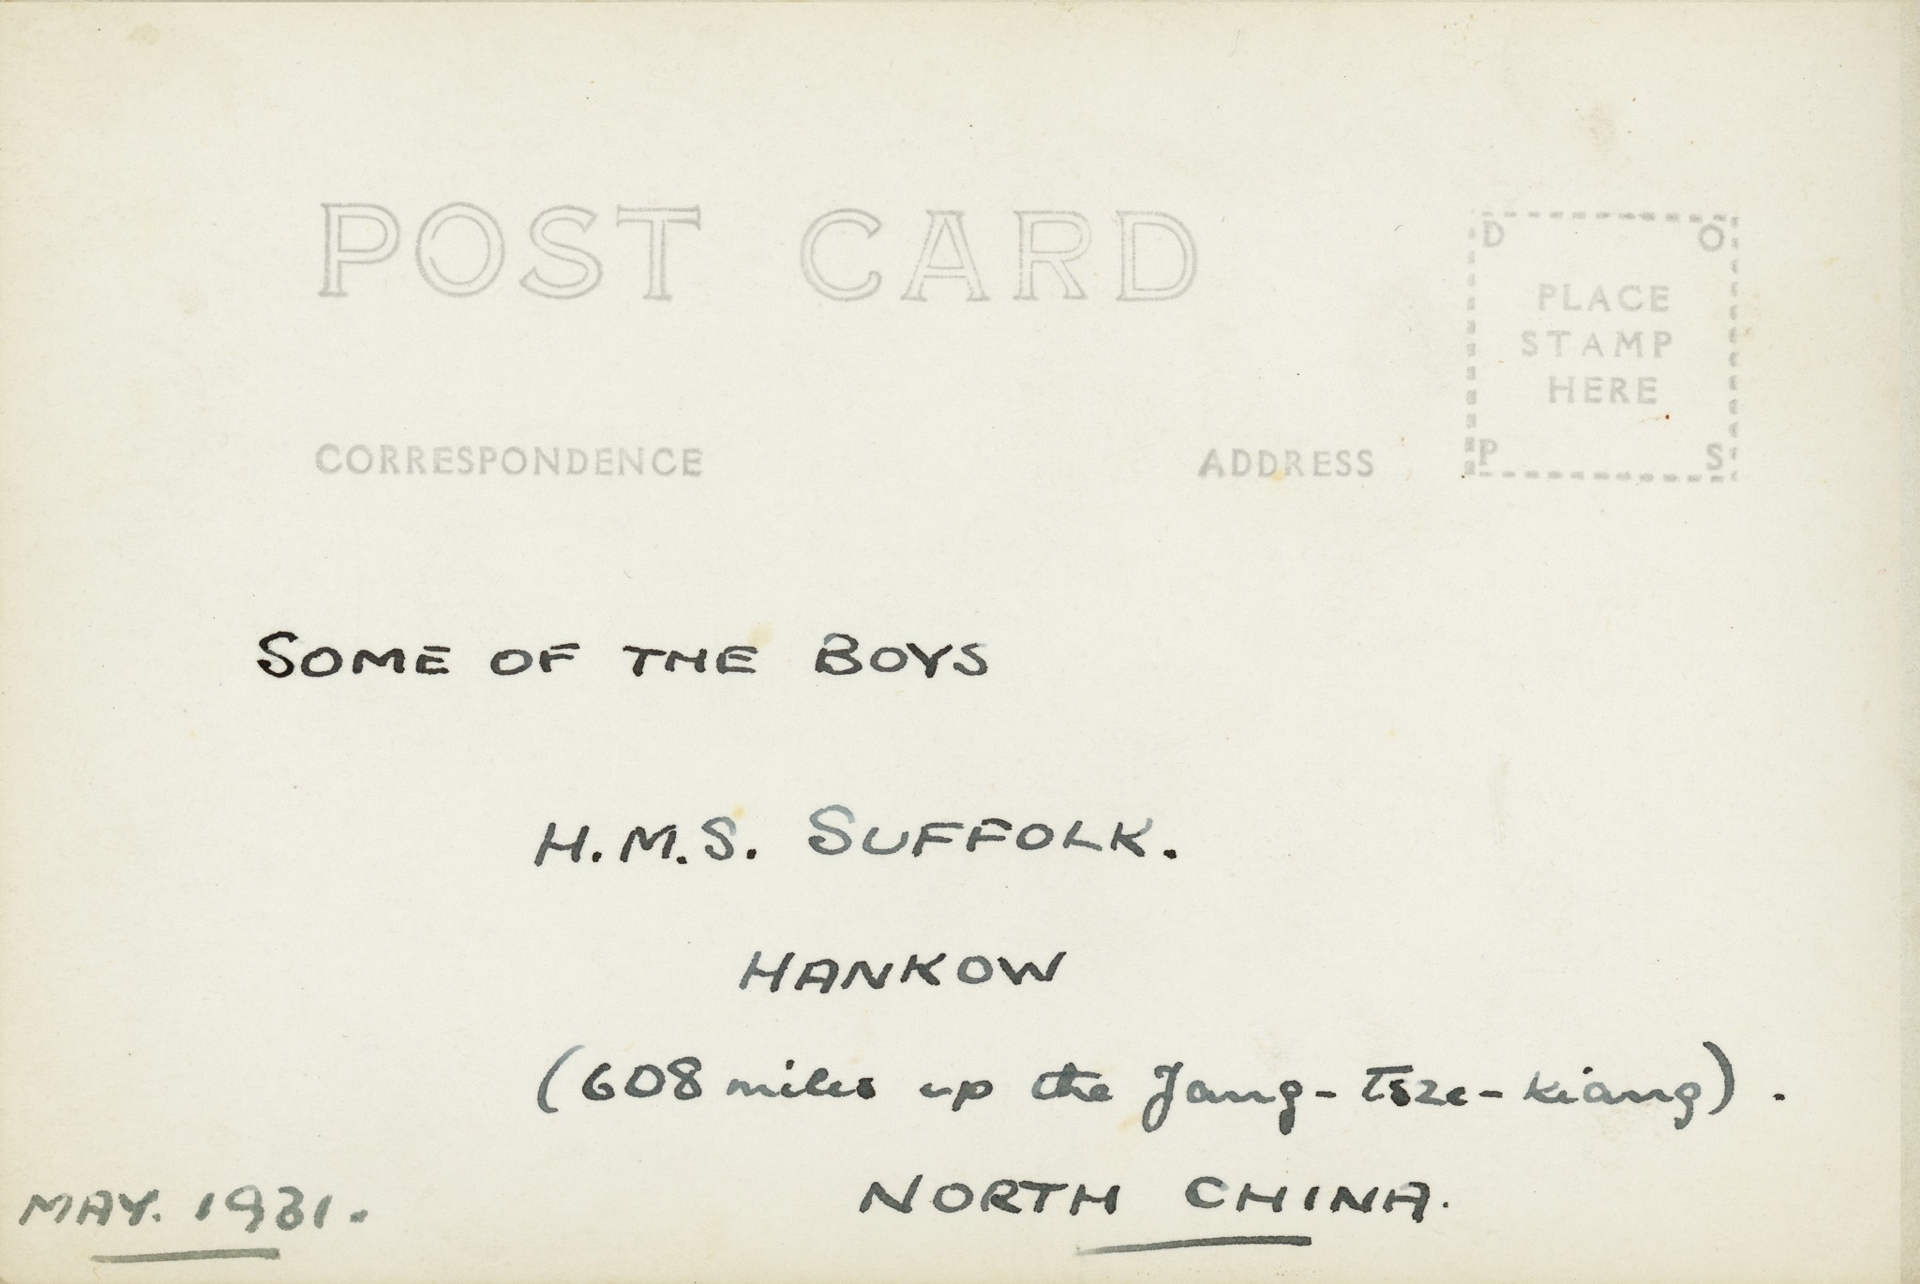 POST CARD
D O
PLACE
STAMP
HERE
P S
CORRESPONDENCE
ADDRESS
SOME OF THE BOYS
H.M.S. SUFFOLK.
HANKOW
(608 miles up the Yang-Tsze-Kiang).
NORTH CHINA.
MAY. 1931.